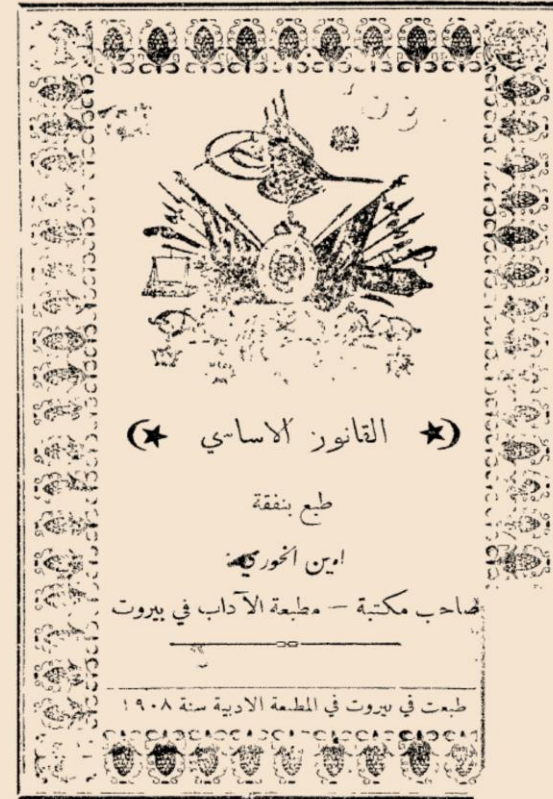 القانون الاساسي
طبع بنفقة
امين الخوري
صاحب مكتبة – مطبعة الآداب في بيروت
طبعت في بيروت في المطبعة الادبية سنة ١٩٠٨